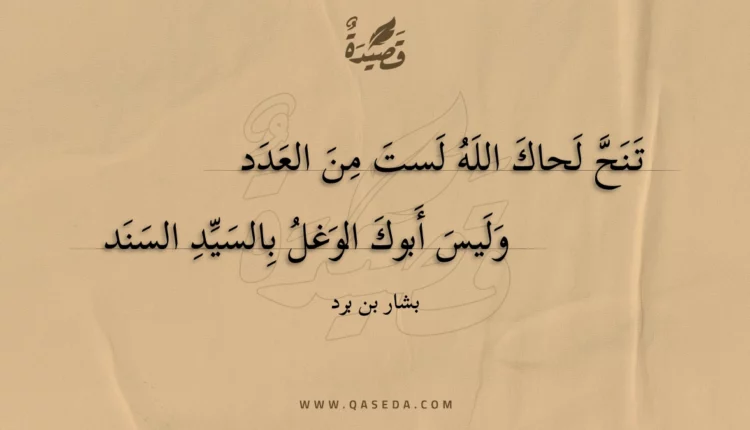 قَصِيْدَةٌ
تَنَحَّ لَحاكَ اللَهُ لَستَ مِنَ العَدَد
وَلَيسَ أَبوكَ الوَغلُ بِالسَيِّدِ السَنَد
بشار بن برد
WWW.QASEDA.COM